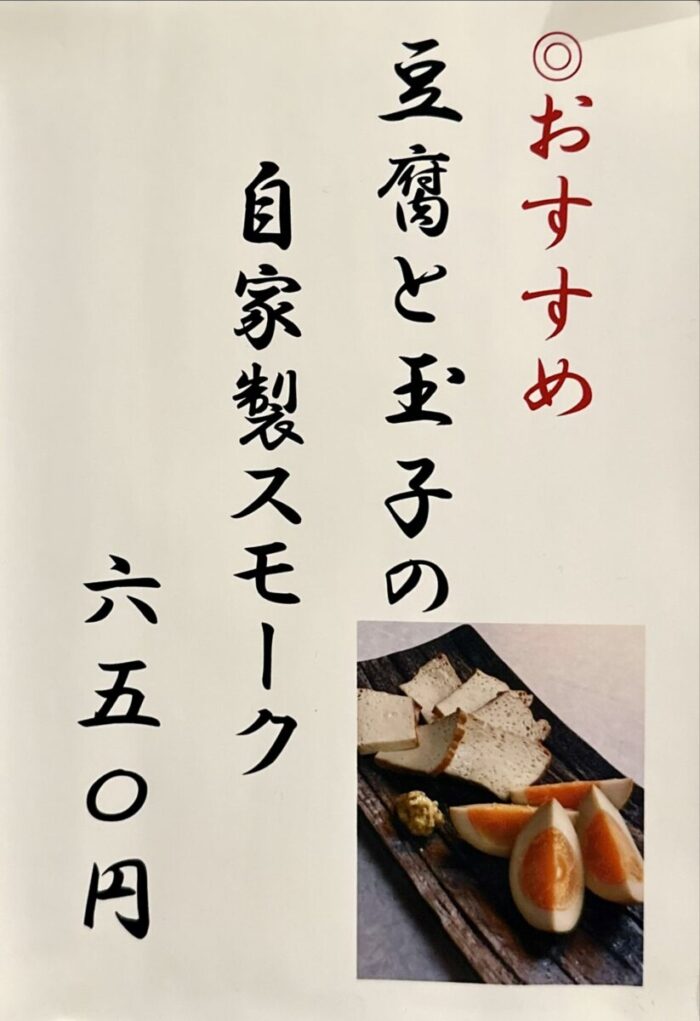 ◎おすすめ
豆腐と玉子の
自家製スモーク
六五〇円